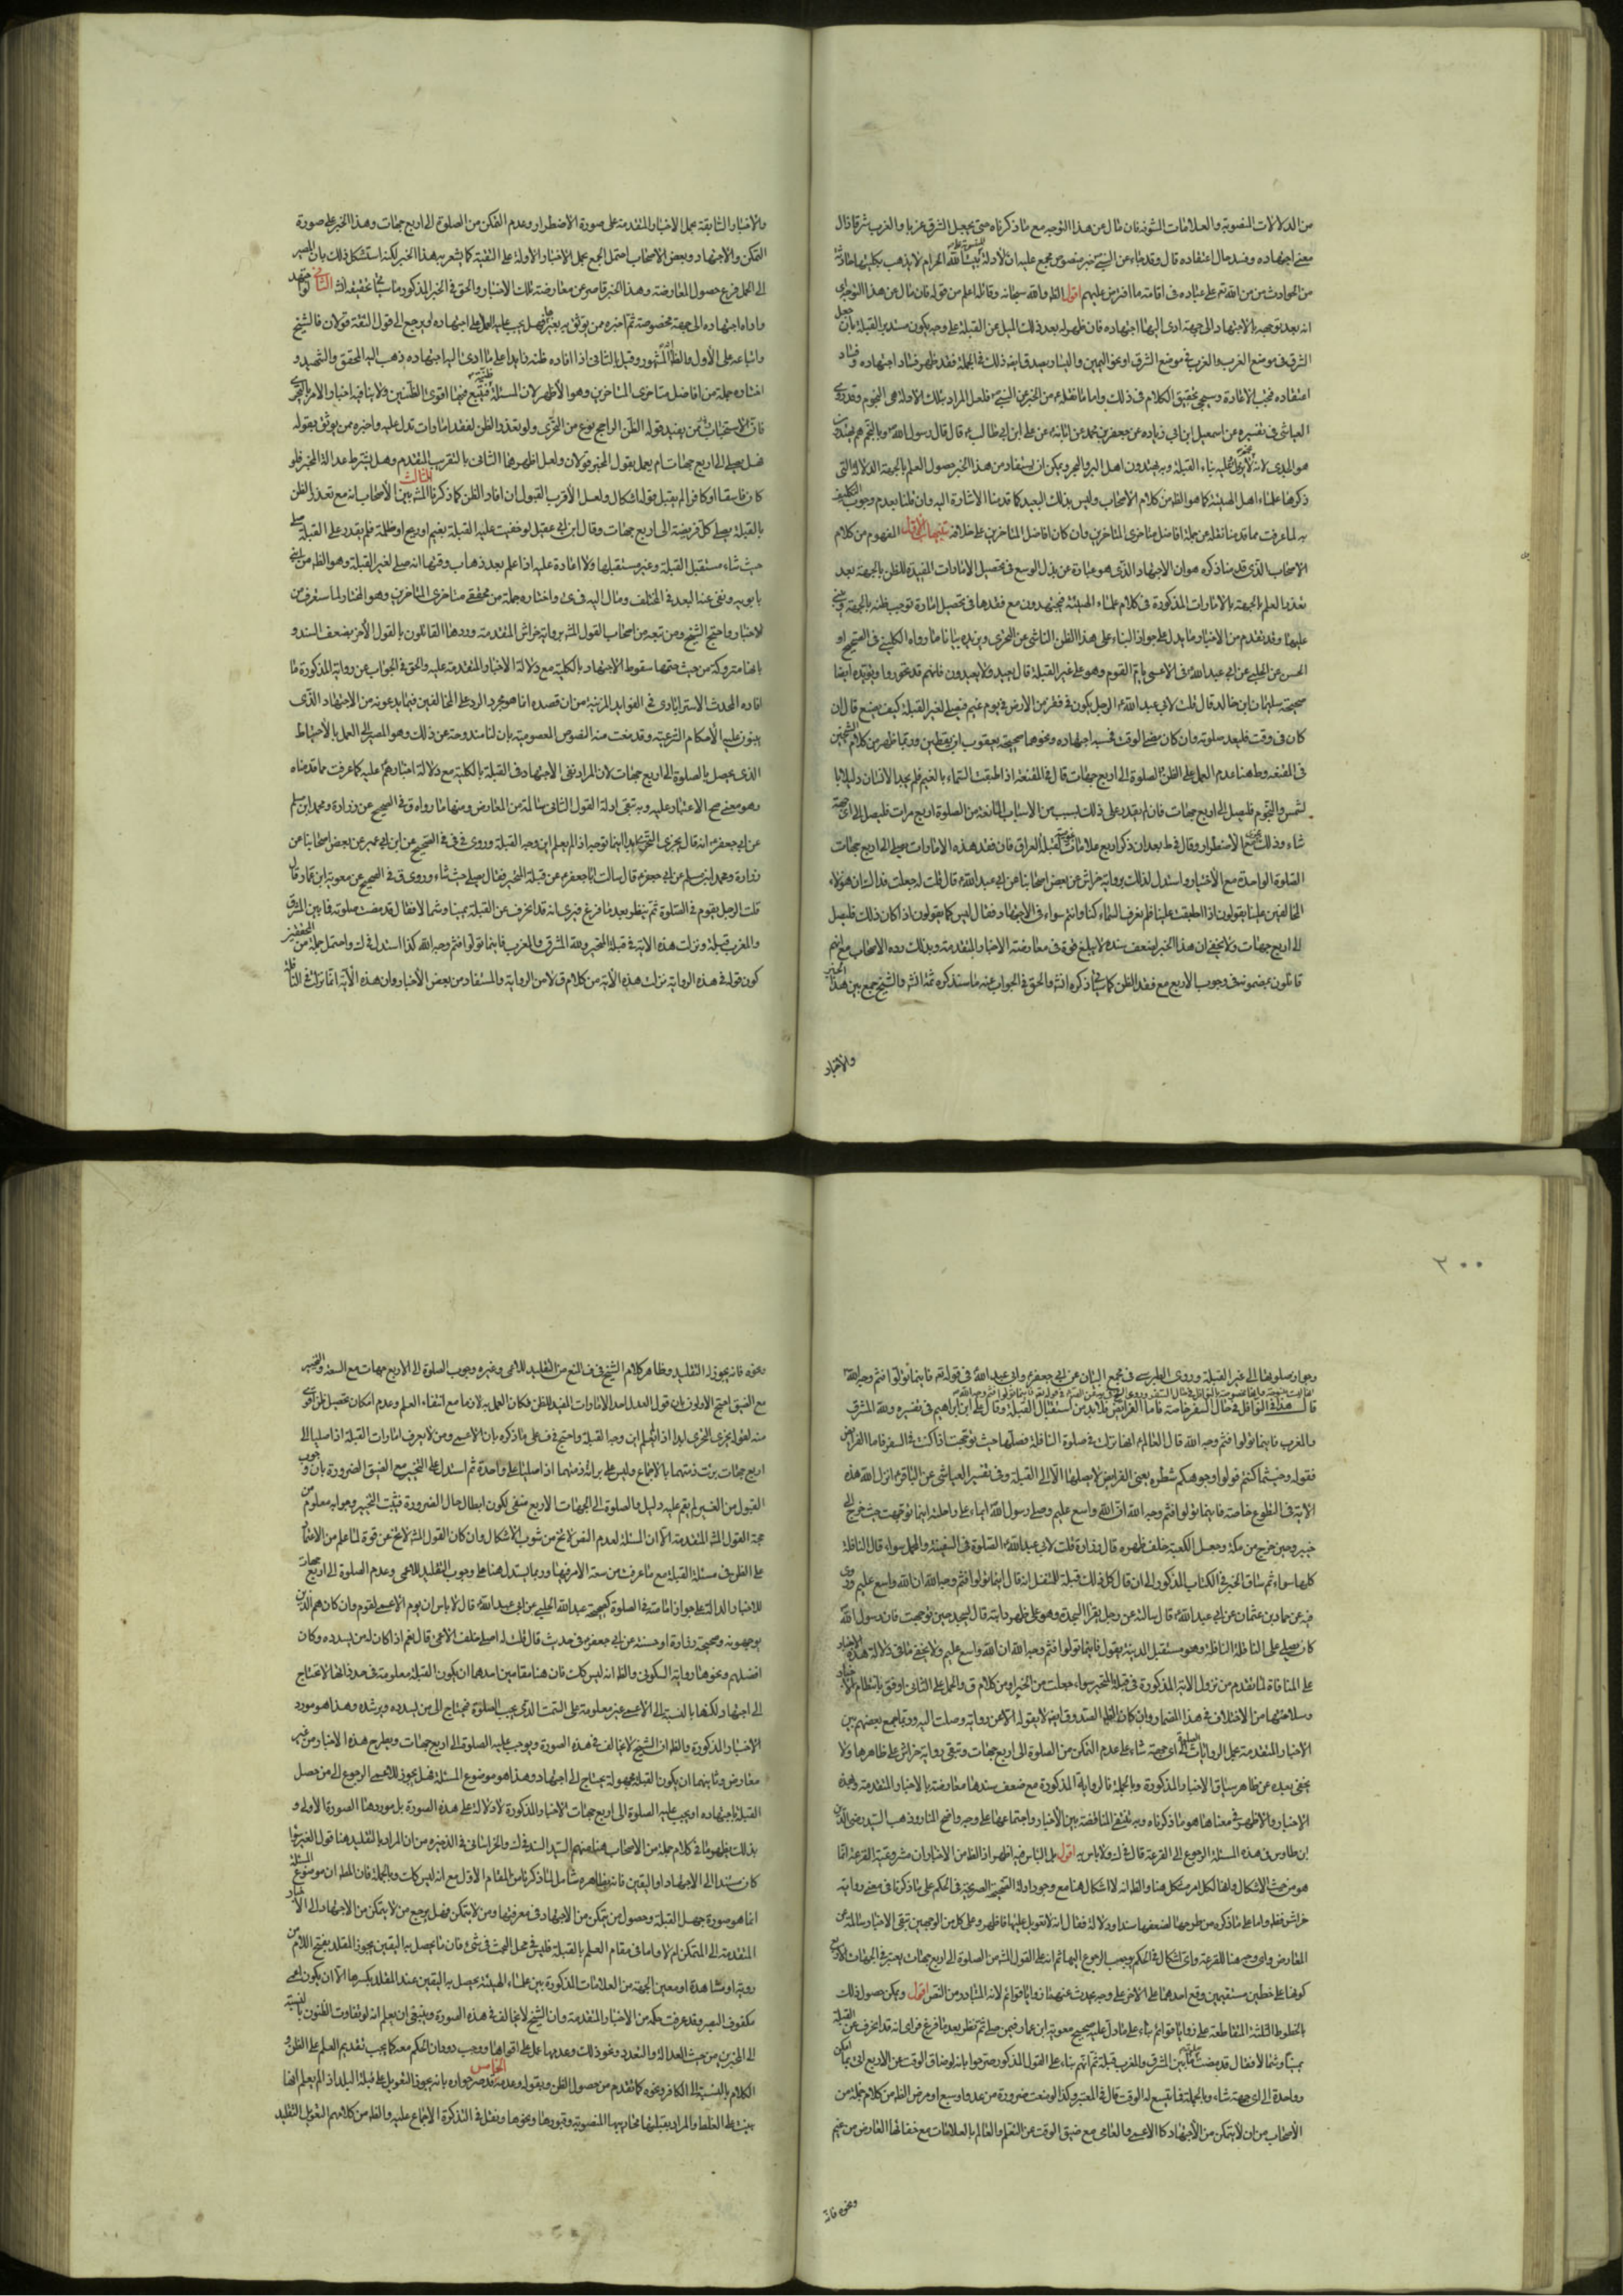 من الدلالات المنصوبة والعلامات
معنى اجتهاده وفسد حال اعتقاده قال وقد جاء عن النبي خبر منصوص مجمع عليه ان الادلة بيت الله الحرام لا يذهب بكليتها حادث
من الحوادث من من الله تم على عباده في اقامة ما افترض عليهم اقول الظ والله سبحانه وقائله اعلم من قوله فان مال عن هذا التوجه
انه بعد توجهه بالاجتهاد الى جهة ادى اليها اجتهاده فان ظهر له بعد ذلك الميل عن القبلة على وجه يكون مستدبر القبلة بان جعل
الشرق في موضع الغرب والغرب في موضع الشرق او نحو اليمين واليسار ذلك في الجملة فقد ظهر فساد اجتهاده وفساد
اعتقاده فيجب الاعادة وسيجئ تحقيق الكلام في ذلك واما ما نقله من الخبر عن النبي فلعل المراد بتلك الادلة هي النجوم وقد روى
العياشي في تفسيره عن اسمعيل ابن ابي زياد عن جعفر بن محمد عن ابائه عن علي ابن ابي طالب قال قال رسول الله وبالنجم هم يهتدون
هو الجدي لانه لا يزول وعليه بناء القبلة وبه يهتدون اهل البر والبحر ويمكن ان يستفاد من هذا الخبر حصول العلم بالجهة الدلالة التي
ذكرها علماء اهل الهيئة كما هو الظ من كلام الاصحاب وليس بذلك البعيد كما قدمنا الاشارة اليه وان قلنا بعدم وجوب التكليف
به لما عرفت مما قدمنا نقله عن جملة افاضل متاخرى المتاخرين وان كان افاضل المتاخرين على خلافه تنبيهات الاول المفهوم من كلام
الاصحاب الذي قدمنا ذكره هو ان الاجتهاد الذي هو عبارة عن بذل الوسع في تحصيل الامارات المفيدة للظن بالجهة بعد
تعذر العلم بالجهة بالامارات المذكورة في كلام علماء الهيئة فيجتهدون مع فقدها في تحصيل امارة توجب ظنه بالجهة
عليها وقد تقدم من الاخبار ما يدل على جواز البناء على هذا الظن الناشي عن التحري ويزيده بيانا ما رواه الكليني في الصحيح او
الحسن عن الحلبي عن ابي عبد الله في الاعمى يؤم القوم وهو على غير القبلة قال يعيد ولا يعيدون فانهم قد تحروا ويؤيده ايضا
صحيحة سليمان ابن خالد قال قلت لابي عبد الله الرجل يكون في قفر من الارض في يوم غيم فيصلي لغير القبلة كيف يصنع قال ان
كان في وقت فليعد صلوته وان كان مضى الوقت فحسبه اجتهاده ونحوها صحيحة يعقوب ابن يقطين وربما ظهر من كلام الشيخين
في المقنعه وط هنا عدم العمل على الظن الصلوة الى اربع جهات قال في المقنعة اذا اطبقت السماء بالغيم فلم يجد الانسان دليلا با
لشمس والنجوم فليصل الى اربع جهات فان لم يقدر على ذلك بسبب من الاسباب المانعة من الصلوة اربع مرات فليصل الى اي جهة
شاء وذلك مع الاضطرار وقال في ط بعد ان ذكر اربع علامات لقبلة العراق فان فقد هذه الامارات صلى الى اربع جهات
الصلوة الواحدة مع الاختيار واستدل لذلك برواية خراش عن بعض اصحابنا عن ابي عبد الله قال قلت له جعلت فداك ان هؤلاء
المخالفين علينا يقولون اذا اطبقت علينا فلم نعرف السماء كنا وانتم سواء في الاجتهاد فقال ليس كما يقولون اذا كان ذلك فليصل
الى اربع جهات ولا يخفى ان هذا الخبر لضعف سنده لا يبلغ قوة في معارضة الاخبار المتقدمة وبذلك رده الاصحاب مع انهم
قائلون بمضمونه في وجوب الاربع مع فقد الظن كما سياتي ذكره انش والحق في الجواب عنه ما سنذكره ثمة انش والشيخ جمع بين هذا الخبر
والاخبار
والاخبار السابقة بحمل الاخبار المتقدمة على صورة الاضطرار وعدم التمكن من الصلوة الى اربع جهات وهذا الخبر على صورة
التمكن والاجتهاد وبعض الاصحاب احتمل الجمع بحمل الاخبار الاولة على التقية كما يشعر به هذا الخبر لكنه استشكل ذلك بان المصير
الى الحمل فرع حصول المعارضة وهذا الخبر قاصر عن معارضة تلك الاخبار والحق في الخبر المذكور ما سياتي تحقيقه انش الثاني لو اجتهد
واداه اجتهاده الى جهة مخصوصة ثم اخبره من يوثق به بغيرها فهل يجب عليه العمل على اجتهاده او يرجع الى قول الثقة قولان فالشيخ
واتباعه على الاول والظ انه المشهور وقيل بالثاني اذا افاده ظنه زايدا على ما ادى اليه اجتهاده ذهب اليه المحقق والشهيد و
اختاره جملة من افاضل متاخرى المتاخرين وهو الاظهر لان المسئلة ظنية فيتبع فيها اقوى الظنين ولا ينافيه اخبار الامر بالتحري
فان الاستخبار ممن يفيد قوله الظن الراجح نوع من التحري ولو تعذر الظن لفقد امارات تدل عليه واخبره من يوثق بقوله
فهل يصلي الى اربع جهات ام يعمل بقول المخبر قولان ولعل اظهرهما الثاني بالتقريب المتقدم وهل يشترط عدالة المخبر فلو
كان فاسقا او كافرا لم يقبل قوله اشكال ولعل الاقرب القبول ان افاد الظن كما ذكرنا الثالث المش بين الاصحاب انه مع تعذر الظن
بالقبلة يصلي كل فريضة الى اربع جهات وقال ابن ابي عقيل لو خفيت عليه القبلة بغيم او ريح او ظلمة فلم يقدر على القبلة صلى
حيث شاء مستقبل القبلة وغير مستقبلها ولا اعادة عليه اذا علم بعد ذهاب وقتها انه صلى لغير القبلة وهو الظ من ابن
بابويه ونفى عنه البعد في المختلف ومال اليه في ى واختاره جملة من محققي متاخرى المتاخرين وهو المختار لما ستعرف من
الاخبار واحتج الشيخ ومن تبعه من اصحاب القول المش برواية خراش المتقدمة وردها القائلون بالقول الاخر بضعف السند و
بانها متروكة من حيث تضمنها سقوط الاجتهاد بالكلية مع دلالة الاخبار المتقدمة عليه والحق في الجواب عن رواية المذكورة ما
افاده المحدث الاسترابادي في الفوايد المدنية من ان قصده انما هو مجرد الرد على المخالفين فيما يدعونه من الاجتهاد الذي
يبنون عليه الاحكام الشرعية وقد منعت منه النصوص المعصومية بان لنا مندوحة عن ذلك وهو المصير الى العمل بالاحتياط
الذي يحصل بالصلوة الى اربع جهات لان المراد نفي الاجتهاد في القبلة بالكلية مع دلالة اخبارهم عليه كما عرفت مما قدمناه
وهو معنى صح الاعتماد عليه وبه تبقى ادلة القول الثاني سالمة من المعارض ومنها ما رواه ق في الصحيح عن زرارة ومحمد ابن مسلم
عن ابي جعفر انه قال يجزى التحري ابدا اينما توجه اذا لم يعلم اين وجه القبلة وروى في في في الصحيح عن ابن ابي عمير عن بعض اصحابنا عن
زرارة ومحمد ابن مسلم عن ابي جعفر قال سالت ابا جعفر عن قبلة المتحير فقال يصلي حيث شاء وروى ق في الصحيح عن معوية ابن عمار قال
قلت الرجل يقوم في الصلوة ثم ينظر بعد ما فرغ فيرى انه قد انحرف عن القبلة يمينا وشمالا فقال قد مضت صلوته فما بين المشرق
والمغرب قبلة ونزلت هذه الاية في قبلة المتحير ولله المشرق والمغرب فاينما تولوا فثم وجه الله كذا استدل في ك واحتمل جملة من المحققين
كون قوله في هذه الرواية نزلت هذه الاية من كلام ق لا من الرواية والمستفاد من بعض الاخبار وان هذه الاية انما نزلت في النافلة
٢٠٠
وجواز صلوتها الى غير القبلة وروى الطبرسي في مجمع البيان عن ابي جعفر وابي عبد الله في قوله تع فاينما تولوا فثم وجه الله
قال هذا في النوافل في حال السفر خاصة فاما الفرائض فلا بد من استقبال القبلة وقال علي ابن ابراهيم في تفسيره ولله المشرق
والمغرب فاينما تولوا فثم وجه الله قال العالم انها نزلت في صلوة النافلة فصلها حيث توجهت اذا كنت في السفر فاما الفرائض
فقوله وحيثما كنتم فولوا وجوهكم شطره يعنى الفرايض لا يصليها الا الى القبلة وفي تفسير العياشي عن الباقر انزل الله هذه
الاية في التطوع خاصة فاينما تولوا فثم وجه الله ان الله واسع عليم وصلى رسول الله ايماء على راحلته اينما توجهت حيث خرج الى
خيبر وحين خرج من مكة وجعل الكعبة خلف ظهره قال زرارة قلت لابي عبد الله الصلوة في السفينة والمحمل سواء قال النافلة
كلها سواء ثم ساق الخبر في الكتاب المذكور الى ان قال كل ذلك قبلة للمتنفل انه قال اينما تولوا فثم وجه الله ان الله واسع عليم وروى
فيه عن حماد بن عثمان عن ابي عبد الله قال سالته عن رجل يقرا السجدة وهو على ظهر دابته قال يسجد حين توجهت فان رسول الله
كان يصلي على الناقلة النافلة وهو مستقبل المدينة يقول فاينما تولوا فثم وجه الله ان الله واسع عليم ولا يخفى ما في دلالة هذه الاخبار
على المنافاة لما تقدم من نزول الاية المذكورة في قبلة المتحير سواء جعلت من الخبر او من كلام ق والحمل على الثاني اوفق بانتظام الاخبار
وسلامتها من الاختلاف في هذا المضمار وان كان الظ ان الصدوق ايض لا يقوله الا عن رواية وصلت اليه وربما جمع بعضهم بين
الاخبار المتقدمة بحمل الروايات المصلية الى اي جهة شاء على عدم التمكن من الصلوة الى اربع جهات وتبقى رواية خراش على ظاهرها ولا
يخفى بعده عن ظاهر سياق الاخبار المذكورة وبالجملة فالرواية المذكورة مع ضعف سندها معارضة بالاخبار المتقدمة وهذه
الاخبار والاظهر في معناها هو ما ذكرناه وبه تنتفي المنافضة بين الاخبار واجتماعها على وجه واضح المنار وذهب السيد رضي الدين
ابن طاوس في هذه المسئلة الرجوع الى القرعة قال في ك ولا باس به اقول بل الباس فيه اظهر اذ الظ من الاخبار ان مشروعية القرعة انما
هو من حيث الاشكال وانها لكل امر مشكل هنا والظ انه لا اشكال هنا مع وجود ادلة الصحيح الصريحة في الحكم على ما ذكرنا في معنى رواية
خراش فظ واما على ما ذكره من طرحها لضعفها سندا ودلالة فقال انه لا تعويل عليها فاظهر وعلى كل من الوجهين تبقى الاخبار سالمة عن
المعارض واي وجه هنا للقرعة واي اشكال في الحكم يوجب الرجوع اليها ثم انه على القول المش من الصلوة الى اربع جهات يعتبر في الجهات الاربع
كونها على خطين مستقيمين وقع احدهما على الاخر على وجه يحدث عنهما زوايا قوائم لانه المتبادر من النص اقول ويمكن حصول ذلك
بالخطوط الثلثة المتقاطعة على زوايا قوائم بناء على ما دل عليه صحيح معوية ابن عمار فيمن صلى ثم نظر بعد ما فرغ فراى انه قد انحرف عن القبلة
يمينا وشمالا فقال قد مضت صلوته فما بين المشرق والمغرب قبلة ثم انهم بناء على القول المذكور صرحوا بانه لو ضاق الوقت عن الاربع اتى بما امكن
وواحدة الى اي جهة شاء وبالجملة فما يتسع له الوقت قال في المعتبر وكذا لو منعت ضرورة من عدو او سبع او مرض الظ من كلام جملة من
الاصحاب من ان لا يتمكن من الاجتهاد كالاعمى والعامى مع ضيق الوقت عن التعلم والعالم بالعلامات مع خفائها لعارض من غيم
ونحوه فانه
ونحوه فانه يجوز له التقليد وظاهر كلام الشيخ في ف المنع من التقليد للاعمى وغيره وجوب الصلوة الى الاربع جهات مع السعة والتخيير
مع الضيق احتج الاولون بان قول العدل احد الامارات المفيد للظن فكان العمل به لازما مع انتفاء العلم وعدم امكان تحصيل ظن اقوى
منه لقوله يجزى التحري ابدا اذا لم يعلم اين وجه القبلة واحتج في ف على ما ذكره بان الاعمى ومن لا يعرف امارات القبلة اذا صليا الى
اربع جهات برئت ذمتهما بالاجماع وليس على براءة ذمتهما اذا صليا على واحدة ثم استدل على التخيير مع الضيق الضرورة بان وجوب
القبول من الغير لم يقم عليه دليل والصلوة الى الجهات الاربع منفي بكون الحال حال الضرورة فثبت التخيير وجوابه معلوم من
حجة القول المش المتقدمة الا ان المسئلة لعدم النص لا تخ من شوب الاشكال وان كان القول المش لا يخ عن قوة لما علم من الاعتماد
على الظن في مسئلة القبلة مع ما عرفت من سعة الامر فيها وربما يستدل هنا على وجوب التقليد للاعمى وعدم الصلوة الى اربع جهات
للاخبار الدالة على جواز امامته في الصلوة كصحيحة عبد الله الحلبي عن ابي عبد الله قال لا باس ان يوم الاعمى القوم وان كان هم الذين
يوجهونه وصحيحة زرارة او حسنة عن ابي جعفر في حديث قال قلت له اصلي خلف الاعمى قال نعم اذا كان له من يسدده وكان
افضلهم ونحوها رواية السكوني والظ انه ليس كك فان هنا مقامين احدهما ان يكون القبلة معلومة في حد ذاتها لا تحتاج
الى اجتهاد لكنها بالنسبة الى الاعمى غير معلومة على السمت الذي يجب الصلوة فيحتاج الى من يسدده ويرشده وهذا هو مورد
الاخبار المذكورة والظ ان الشيخ لا يخالف في هذه الصورة ويوجب عليه الصلوة الى اربع جهات ويطرح هذه الاخبار من غير
معارض وثانيهما ان يكون القبلة مجهولة يحتاج الى اجتهاد وهذا هو موضوع المسئلة فهل يجوز للاعمى الرجوع الى من حصل
القبلة باجتهاده او يجب عليه الصلوة الى اربع جهات الاخبار المذكورة لا دلالة على هذه الصورة بل موردها الصورة الاولى و
بذلك يظهر ما في كلام جملة من الاصحاب هنا منهم السيد السند في ك والخراساني في الذخيرة من ان المراد بالتقليد هنا قول الغير سواء
كان مستندا الى الاجتهاد او اليقين فانه بظاهره شامل لما ذكرنا من المقام الاول مع انه ليس كك وبالجملة فان الظ ان موضوع المسئلة
انما هو صورة جهل القبلة وحصول من تمكن من الاجتهاد في معرفتها ومن لا يتمكن وهل يرجع من لا يتمكن من الاجتهاد الى الاخبار
المتقدمة الى المتمكن ام لا واما في مقام العلم بالقبلة فليس في محل البحث في شئ فان ما يحصل به اليقين يجوز المقلد بفتح اللام من
روية او مشاهدة او معين الجهة من العلامات المذكورة بين علماء الهيئة يحصل به اليقين عند المقلد بكسرها الا ان يكون اعمى
مكفوف البصر وقد عرفت حكمه من الاخبار المتقدمة وان الشيخ لا يخالف في هذه الصورة وينبغي ان يعلم انه لو تفاوت الظنون بالنسبة
الى المخبرين من حيث العدالة والتعدد ونحو ذلك وعدمها عمل على اقواها ووجب دوران الحكم معه كما يجب تقديم العلم على الظن و
الكلام بالنسبة الى الكافر ونحوه كما تقدم من حصول الظن وبقوله وعدمه الخامس قد صرحوا بانه يجوز التعويل على قبلة البلد اذا لم يعلم انها
بنيت على الغلط والمراد بقبلتها محاريبها المنصوبة وقبورها ونحوها ونقل في التذكرة الاجماع عليه والظ من كلامهم التعويل التقليد